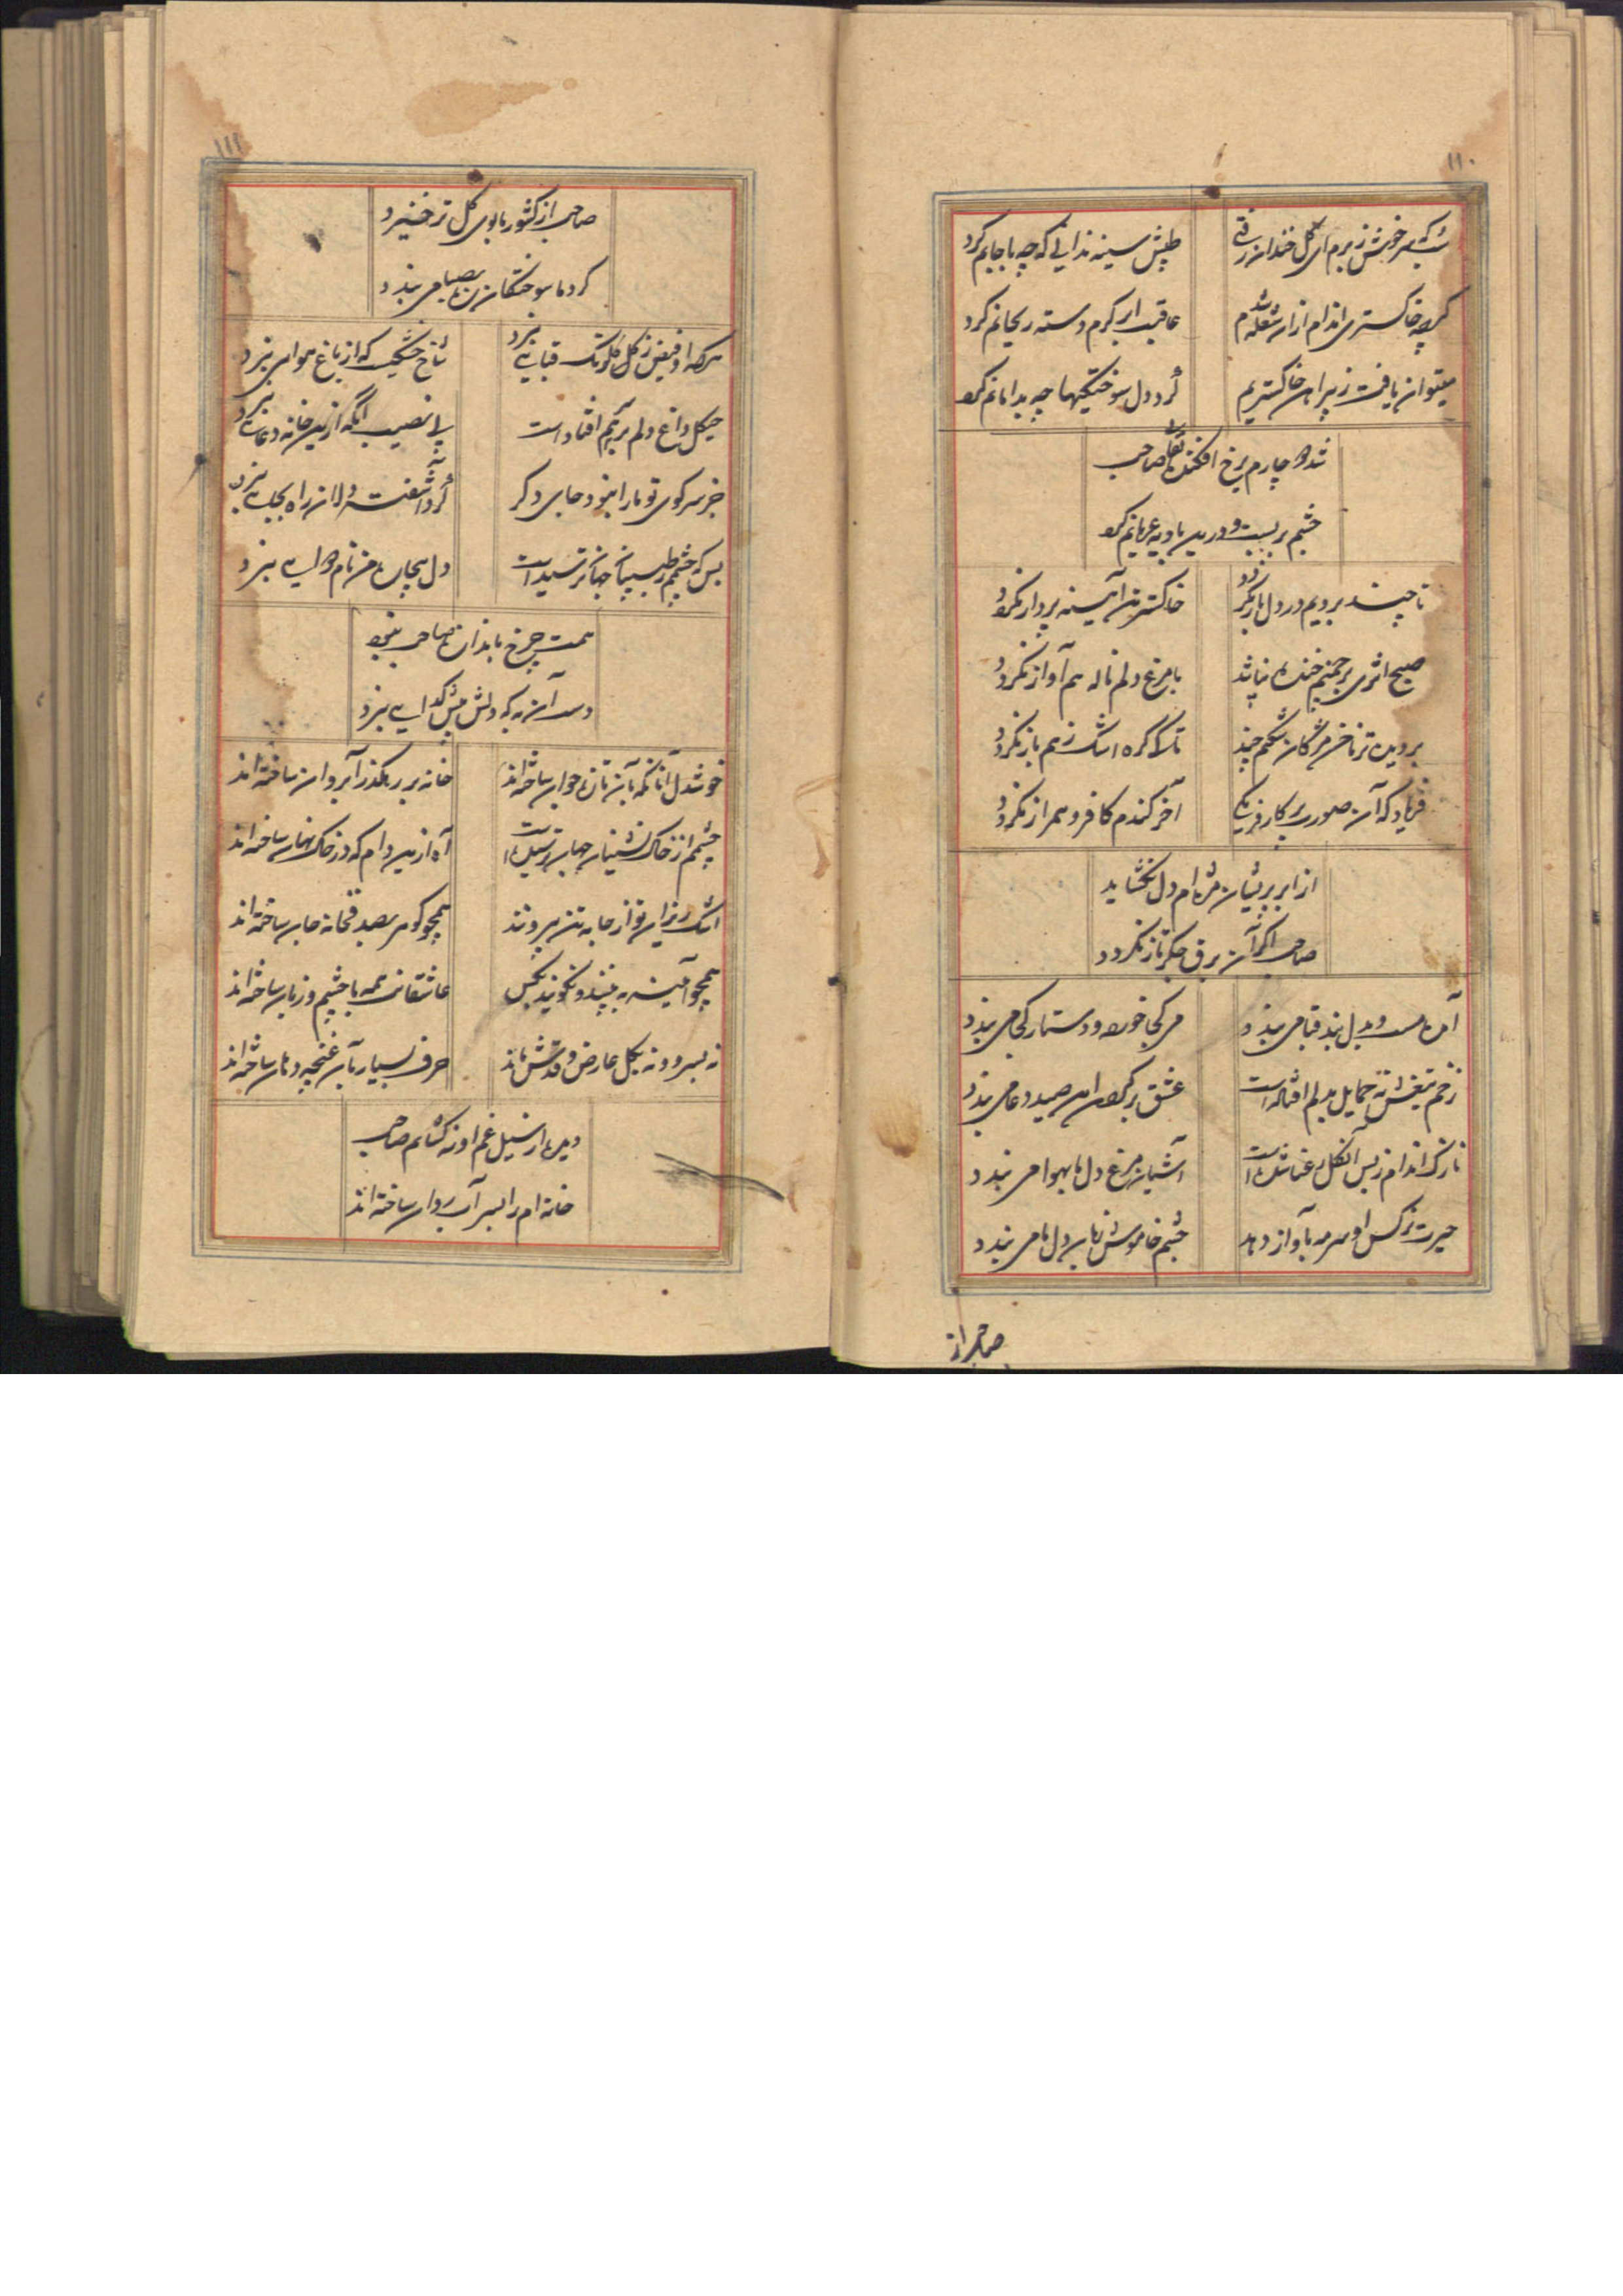 ۱۱۰
شب که سرخوش ز برم ای گل خندان رفتی
طپش سینه ندانی که چه با جانم کرد
گرچه خاکستری اندام از ان شعله شدم
عاقبت ابر کرم دسته ریحانم کرد
میتوان یافت ز پیراهن خاکستریم
گرد دل سوختگیها چه بدامانم کرد
شد دچارم برخ افکنده نقابی صاحب
چشم بربست و درین بادیه عریانم کرد
تا چند برویم در دل باز نگردد
خاکستر من آینه پرداز نگردد
صبح اثری بر چمنم خنده نپاشد
با مرغ دلم ناله هم آواز نگردد
بر دیده تر ناخن مژگان شکنم چند
تا کی گره اشک ز هم باز نگردد
فریاد که آن صورت پرکار فریبا
آخر کندم کافر و همراز نگردد
از ابر پریشان مژه ام دل نگشاید
صاحب اگر آن برق جگرتاز نگردد
آمده مست و بدل بند قبا می بندد
می کجا خورده و دستار کجا می بندد
زخم تیغش نه حمایل بدلم افتاده است
عشق بر گردن این صید دعا می بندد
نازک اندام ز بس آن گل رعنا شده است
آشیان مرغ دل ما بهوا می بندد
حیرت نرگس او سرمه بآواز دهد
چشم خاموش زبان دل ما می بندد
صاحب از
۱۱۱
صاحب از کشور ما بوی گل تر خیزد
گرد ما سوختگان ره بصبا می بندد
هرکه او فیض ز گل گلونک قبایی نبرد
شاخ خشکیست که از باغ هوایی نبرد
هیکل داغ دلم بر تنم افتاد است
بی نصیب آنکه ازین خانه دعایی نبرد
جز سر کوی تو ما را نبود جای دگر
گرد آشفته دلان راه بجایی نبرد
بس که چشمم ز طبیبان جهان ترسیده است
دل بیچاره من نام دوایی نبرد
همت چرخ باندازه صاحب نبود
دست آن به که دلش پیش گدایی نبرد
خوشدل آنانکه بآن تازه جوان ساخته اند
خانه بر رهگذر آب روان ساخته اند
چشمم از خاک نشینان جهان ترسیده است
آه ازین دام که در خاک نهان ساخته اند
اشک ریزان تو از جامه تن بیرونند
همچو گوهر بصدفخانه جان ساخته اند
همچو آیینه ببینند و نگویند بکس
عاشقانت همه با چشم و زبان ساخته اند
نه بسرو و نه بگل عارض و قدش ماند
حرف بسیار بآن غنچه دهان ساخته اند
دیده از سیل غم او نه گشایم صاحب
خانه ام را بسر آب روان ساخته اند